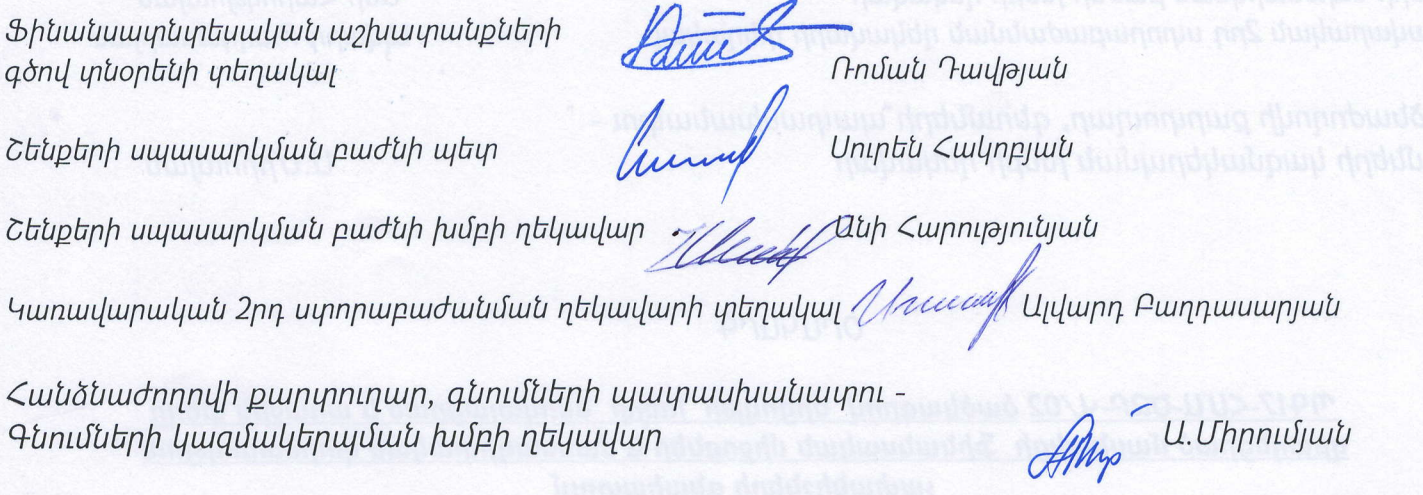 Ֆինանսատնտեսական աշխատանքների
գծով տնօրենի տեղակալ Ռոման Դավթյան
Շենքերի սպասարկման բաժնի պետ Սուրեն Հակոբյան
Շենքերի սպասարկման բաժնի խմբի ղեկավար Անի Հարությունյան
Կառավարական 2րդ ստորաբաժանման ղեկավարի տեղակալ Ալվարդ Բաղդասարյան
Հանձնաժողովի քարտուղար, գնումների պատասխանատու -
Գնումների կազմակերպման խմբի ղեկավար Ա.Միրումյան